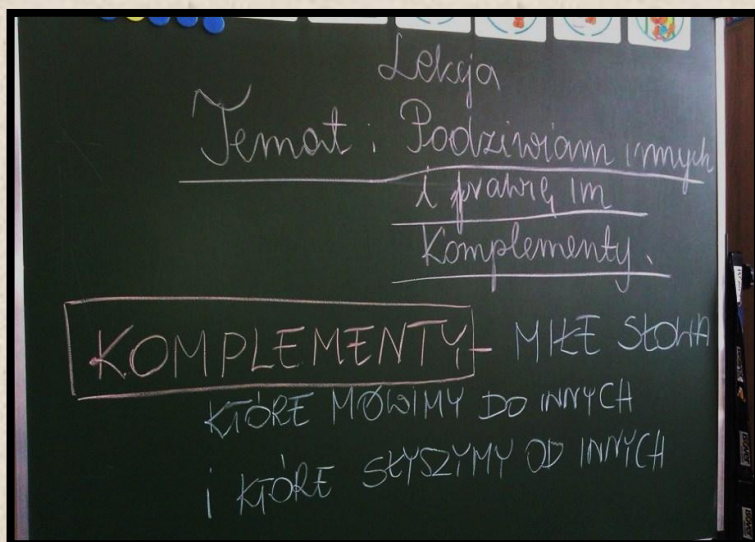 Lekcja
Temat: Podziwiam innych
i prawię im
Komplementy.
KOMPLEMENTY - MIŁE SŁOWA
KTÓRE MÓWIMY DO INNYCH
i KTÓRE SŁYSZYMY OD INNYCH